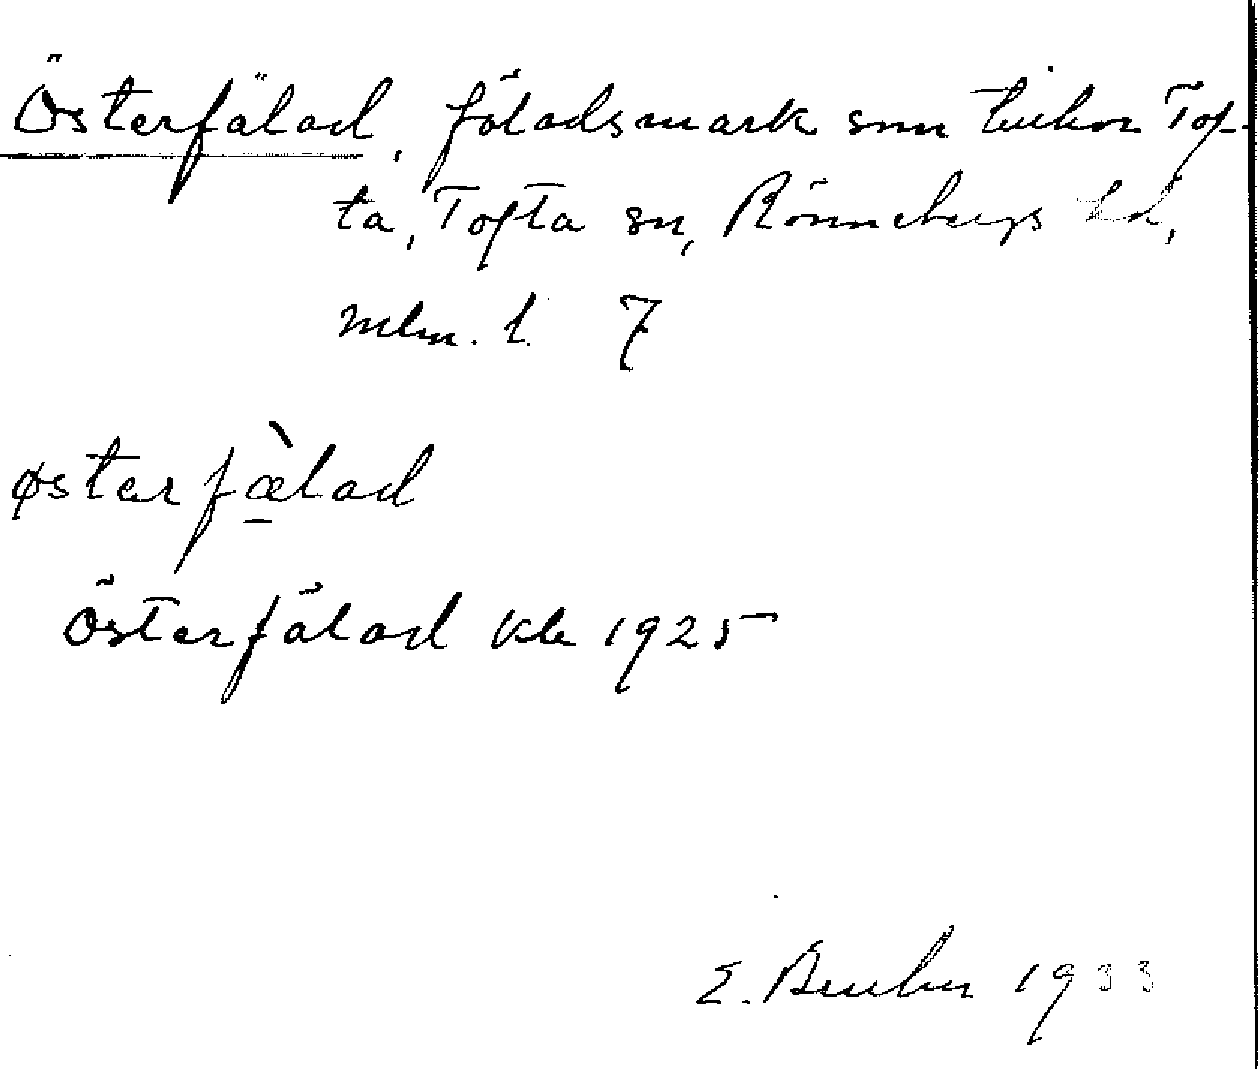 Österfälad, fäladsmark som tillhör Tof-
ta, Tofta sn, Rönnebergs hd,
mlm. l. 7
østərfæ̀lad
Österfälad kbr 1925
E. 1933